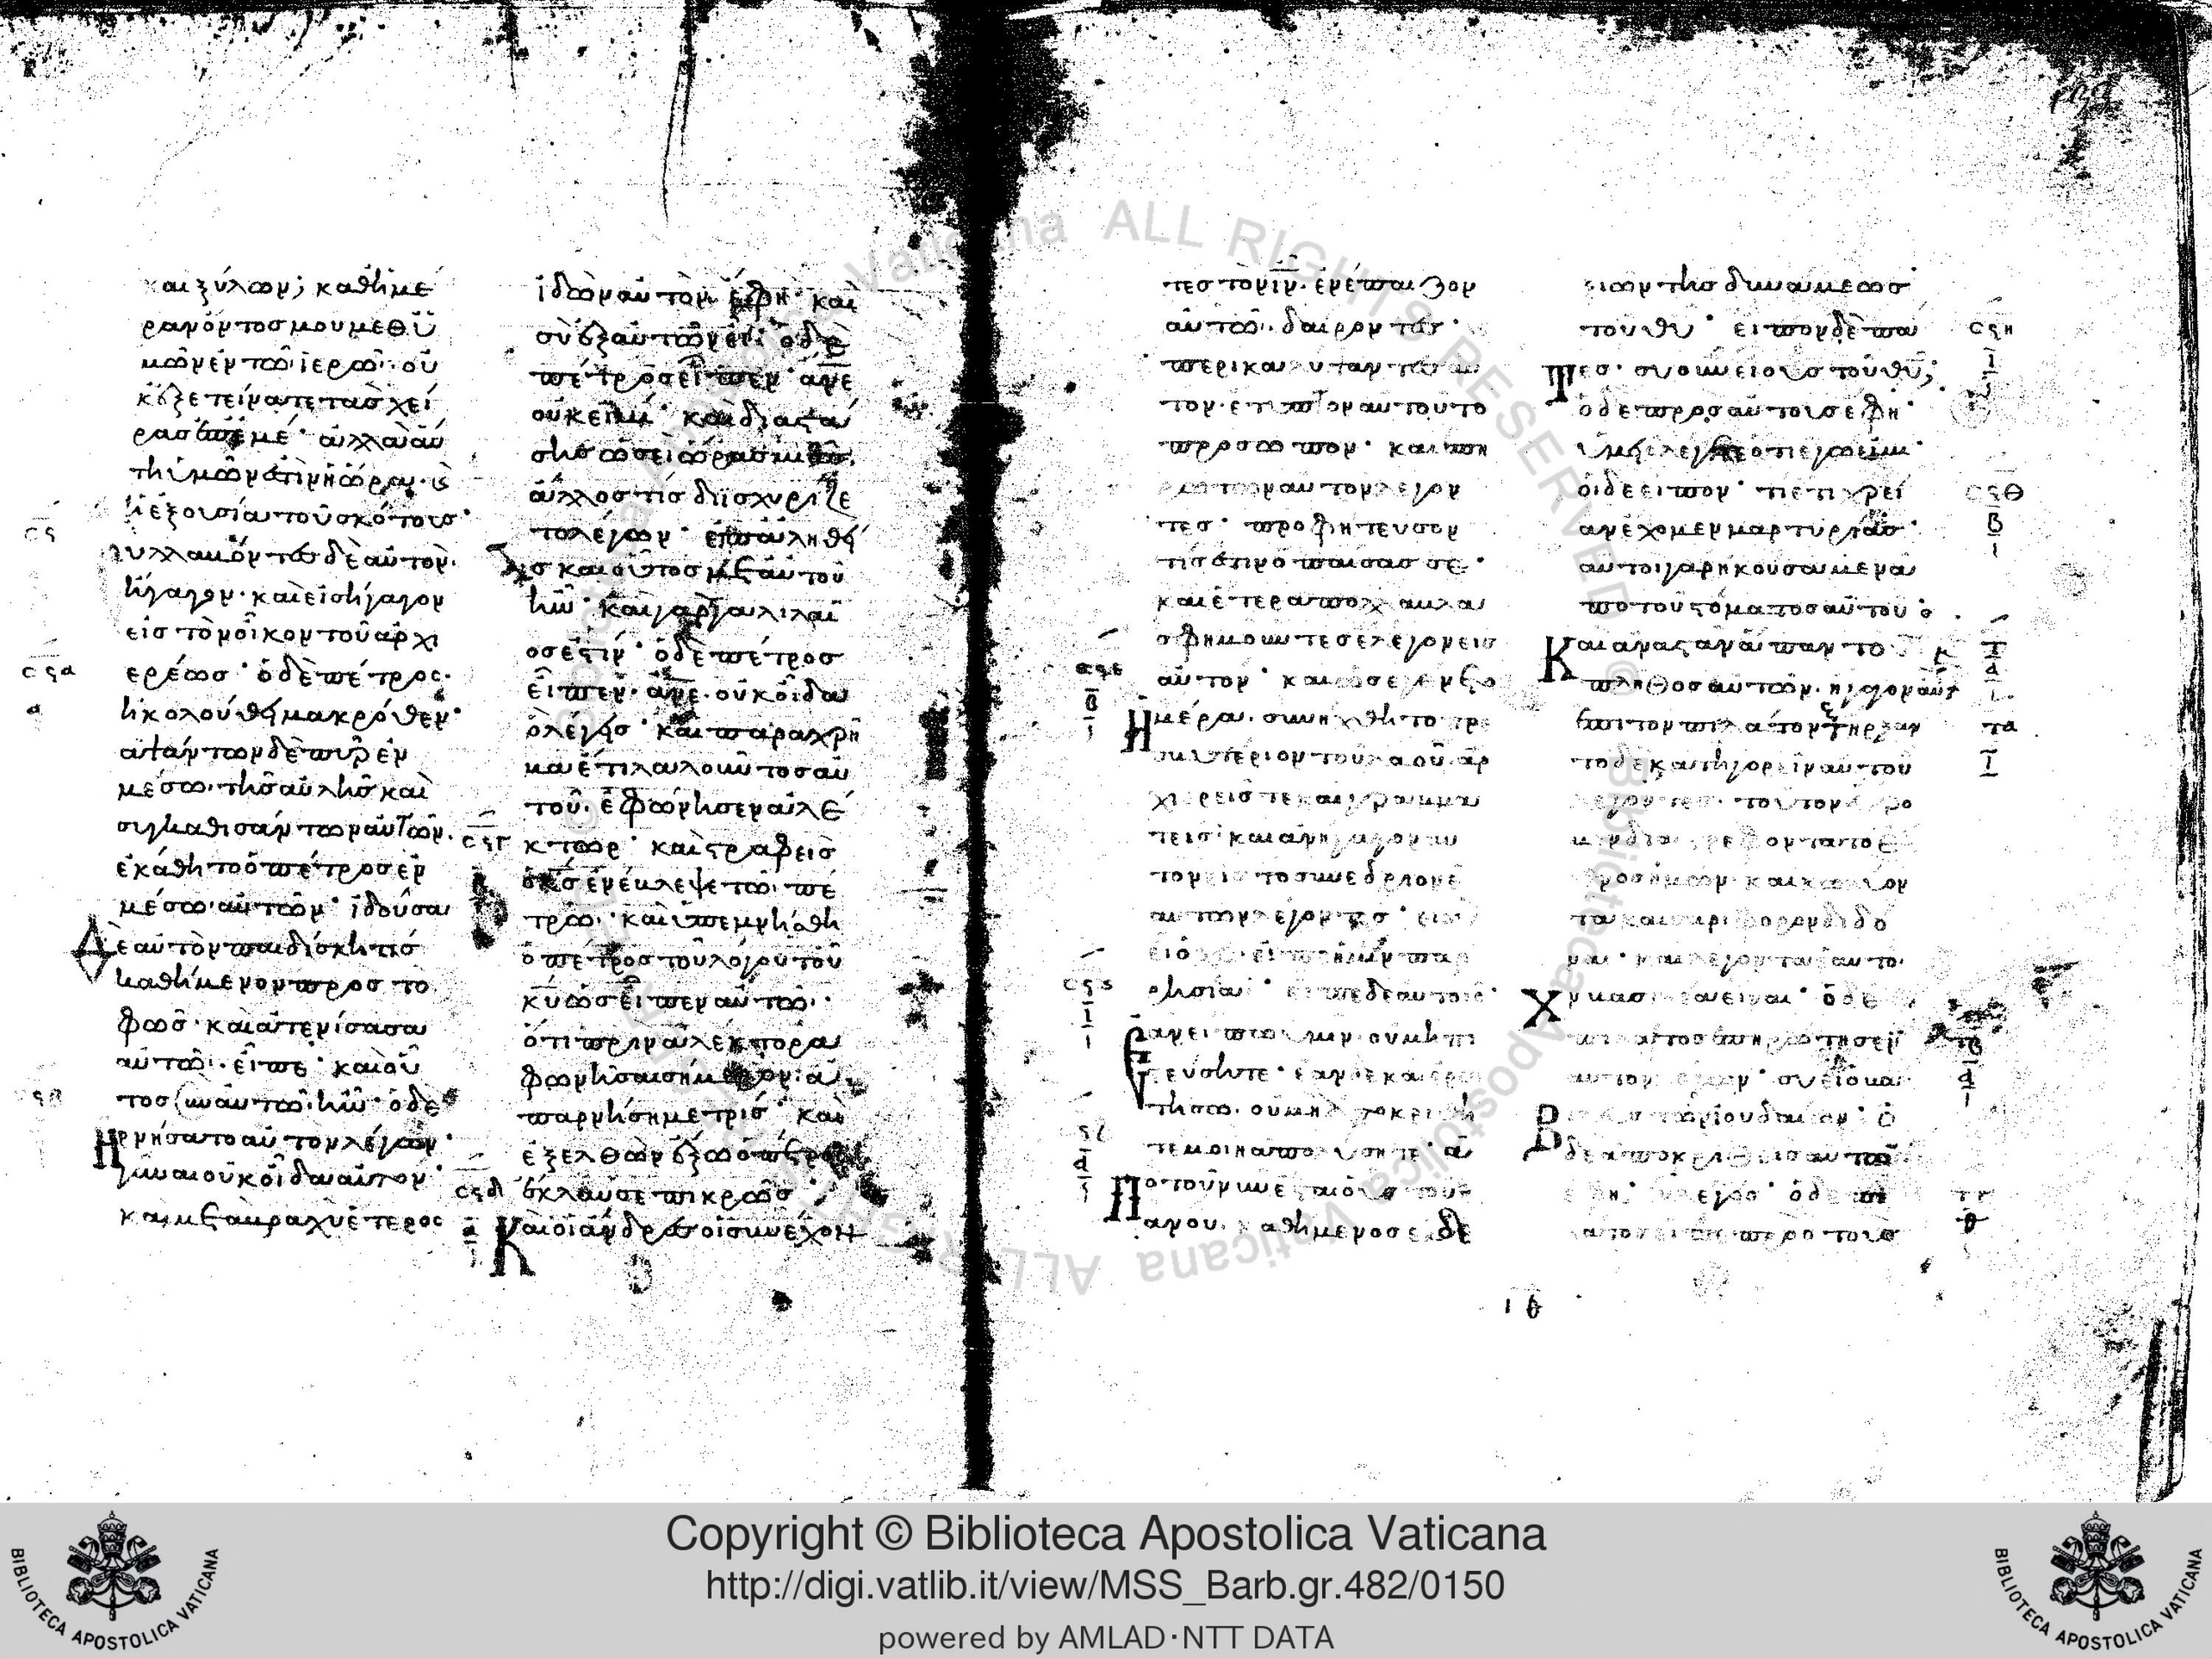 και ξύλων; καθημέ
ραν ὄντος μου μεθ ὑ
μῶν ἐν τῶ ἱερῶ· οὐ
κ ἐξετείνατε τὰς χεῖ
ρας ἐπ ἐμέ· ἀλλ αὕ
τη ὑμῶν ἐστὶν ἡ ὥρα· κ
ἡ ἐξουσία τοῦ σκότους·
συλλαβόντες δὲ αὐτὸν·
ἤγαγον· καὶ εἰσήγαγον
εἰς τὸν οἶκον τοῦ ἀρχι
ερέως· ὁ δὲ πέτρος·
ἠκολούθει μακρόθεν·
ἁψάντων δὲ πῦρ ἐν
μέσω τῆς αὐλῆς καὶ
συγκαθισάντων αὐτῶν·
ἐκάθητο ὁ πέτρος ἐν
μέσω αὐτῶν· ἰδοῦσα
δὲ αὐτὸν παιδίσκη τις
καθήμενον προς το
φῶς· καὶ ἀτενίσασα
αὐτῶ· εἶπε· καὶ οὗ
τος σὺν αὐτῶ ἦν· ὁ δὲ
ἠρνήσατο αὐτον λέγων·
γύναι οὐκ οἶδα αὐτον·
καὶ μετὰ βραχὺ ἕτερος
ἰδὼν αὐτὸν ἔφη· καὶ
σὺ ἐξ αὐτῶν εἶ· ὁ δὲ
πέτρος εἶπεν· ἄνε
οὐκ εἰμί· καὶ διαστά
σης ὡσεὶ ὥρας μιᾶς·
ἄλλος τίς διϊσχυρίζε
το λέγων· ἐπ ἀληθεί
ας καὶ οὗτος μετ αὐτοῦ
ἦν· καὶ γαρ γαλιλαῖ
ος ἐστίν· ὁ δὲ πέτρος
εἶπεν· ἄνε· οὐκ οἶδα
ὃ λέγεις· καὶ παραχρῆ
μα ἔτι λαλοῦντος αὐ
τοῦ· ἐφώνησεν ἀλέ
κτωρ· καὶ στραφεὶς
ὁ κς ἐνέβλεψε τῶ πέ
τρω· καὶ ὑπεμνήσθη
ὁ πέτρος τοῦ λόγου τοῦ
κυ ὡς εἶπεν αὐτῶ·
ὅτι πρὶν ἀλέκτορα
φωνῆσαι σήμερον· ἀ
παρνήση με τρίς· καὶ
ἐξελθὼν ἔξω ὁ πέτρος
ἔκλαυσε πικρῶς·
Καὶ οἱ ἄνδρες οἱ συνέχον
τες τὸν ιν· ἐνέπαιζον
αὐτῶ· δαίροντες·
περικαλύψαντες αὐ
τον· ἔτυπτον αὐτοῦ το
πρόσωπον· καὶ ἐπη
ρώτων αὐτον λέγον
τες· προφήτευσον
τίς ἐστιν ὁ παίσας σε·
καὶ ἕτερα πολλὰ βλα
σφημοῦντες ἔλεγον εἰς
αὐτόν· καὶ ὡς ἐγένετο
Ἡμέρα· συνήχθη το πρε
σβυτέριον τοῦ λαοῦ ἀρ
χιερεῖς τε καὶ γραμμα
τεῖς· καὶ ἀνήγαγον αὐ
τον εἰς το συνέδριον ἑ
αυτῶν λέγοντες· εἰ σὺ
εἶ ὁ χς· εἰπὲ ἡμῖν παρ
ρησία· εἶπε δὲ αὐτοῖς·
Ἐὰν εἴπω ὑμῖν οὐ μὴ πι
στεύσητε· ἐὰν δὲ καὶ ἐρω
τήσω· οὐ μὴ ἀποκριθῆ
τέ μοι ἢ ἀπολύσητε· ἀ
Πὸ τοῦ νῦν ἔσται ὁ υς τοῦ
ανου· καθήμενος ἐκ δε
ξιῶν τῆς δυνάμεως
τοῦ θυ· εἶπον δὲ πάν
Τες· συ οὖν εἶ ὁ υς τοῦ θυ;
ὁ δε προς αὐτοὺς ἔφη·
ὑμεῖς λέγετε ὅτι ἐγώ εἰμι·
οἱ δὲ εἶπον· τί ἔτι χρεί
αν ἔχομεν μαρτυρίας·
αὐτοὶ γὰρ ἠκούσαμεν ἀ
πο τοῦ στόματος αὐτοῦ·
Καὶ ἀναστὰν ἅπαν το
πλῆθος αὐτῶν· ἤγαγον αὐτ
ἐπὶ τον πιλάτον· ἤρξαν
το δὲ κατηγορεῖν αὐτοῦ
λέγοντες· τοῦτον εὕρο
μεν διαστρέφοντα το ἔ
θνος ἡμῶν· καὶ κωλύον
τα καίσαρι φόρον διδό
ναι· καὶ λέγοντα ἑαυτο
Χν βασιλέα εἶναι· ὁ δὲ
πιλᾶτος ἐπηρώτησεν
αὐτον λέγων· σὺ εἶ ὁ βα
Βασιλεὺς τῶν ἰουδαίων· ὁ
δὲ ἀποκριθεὶς αὐτῶ
ἔφη· σὺ λέγεις· ὁ δὲ πι
λᾶτος εἶπε προς τοὺς
Copyright © Biblioteca Apostolica Vaticana
http://digi.vatlib.it/view/MSS_Barb.gr.482/0150
powered by AMLAD·NTT DATA